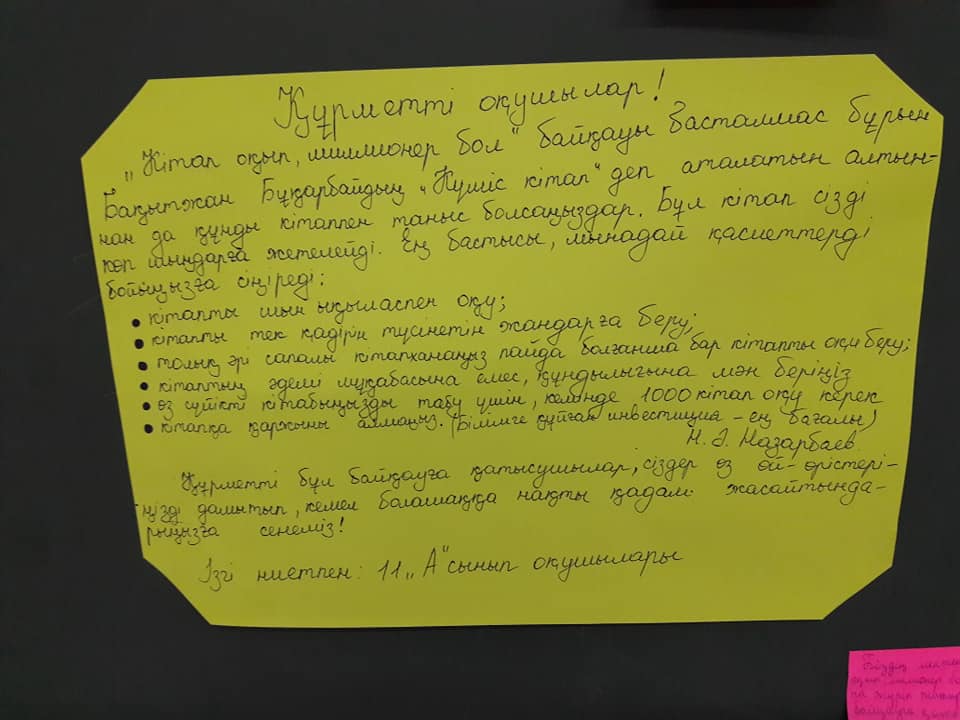 Құрметті оқушылар!
„Кітап оқып, миллионер бол" байқауы басталмас бұрын
Бақытжан Бұқарбайдың „Күміс кітап" деп аталатын алтын-
нан да құнды кітаппен таныс болсаңыздар. Бұл кітап сізді
көп шыңдарға жетелейді. Ең бастысы, мынадай қасиеттерді
бойыңызға сіңіреді:
• кітапты шын ықыласпен оқу;
• кітапты тек қадірін түсінетін жандарға беру;
• толық әрі сапалы кітапханаңыз пайда болғанша бар кітапты оқи беру;
• кітаптың әдемі мұқабасына емес, құндылығына мән беріңіз
• өз сүйікті кітабыңызды табу үшін, кемінде 1000 кітап оқу керек
• кітапқа қаржыны аямаңыз. (Білімге құйған инвестиция - ең бағалы)
Н. Ә. Назарбаев.
Құрметті бұл байқауға қатысушылар, сіздер өз ой-өрістері-
ңізді дамытып, кемел болашаққа нақты қадам жасайтында-
рыңызға сенеміз!
Ізгі ниетпен: 11 „А" сынып оқушылары
Біздің
миллионер